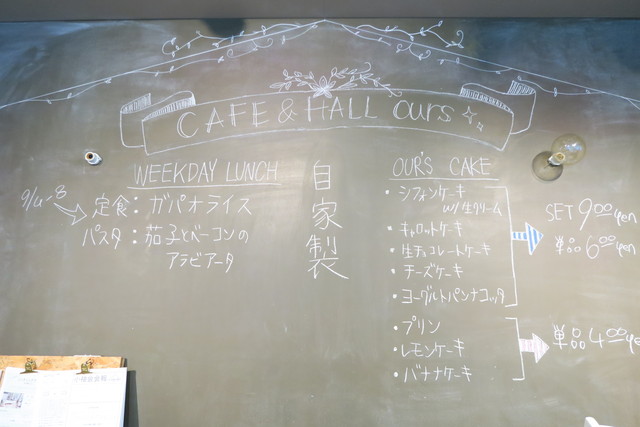 CAFE & HALL ours
WEEKDAY LUNCH
定食：ガパオライス
パスタ：茄子とベーコンの
アラビアータ
自家製
OUR'S CAKE
・シフォンケーキ
w/生クリーム
・キャロットケーキ
・生チョコレートケーキ
・チーズケーキ
・ヨーグルトパンナコッタ
SET 900yen
単品 600yen
・プリン
・レモンケーキ
・バナナケーキ
単品 400yen